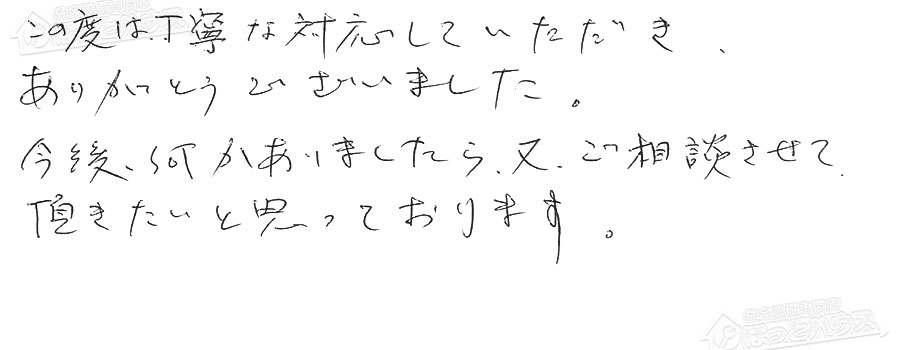 この度は、丁寧な対応していただき、
ありがとうございました。
今後、何かありましたら、又、ご相談させて
頂きたいと思っております。
住宅設備専門店
ほっとハウス